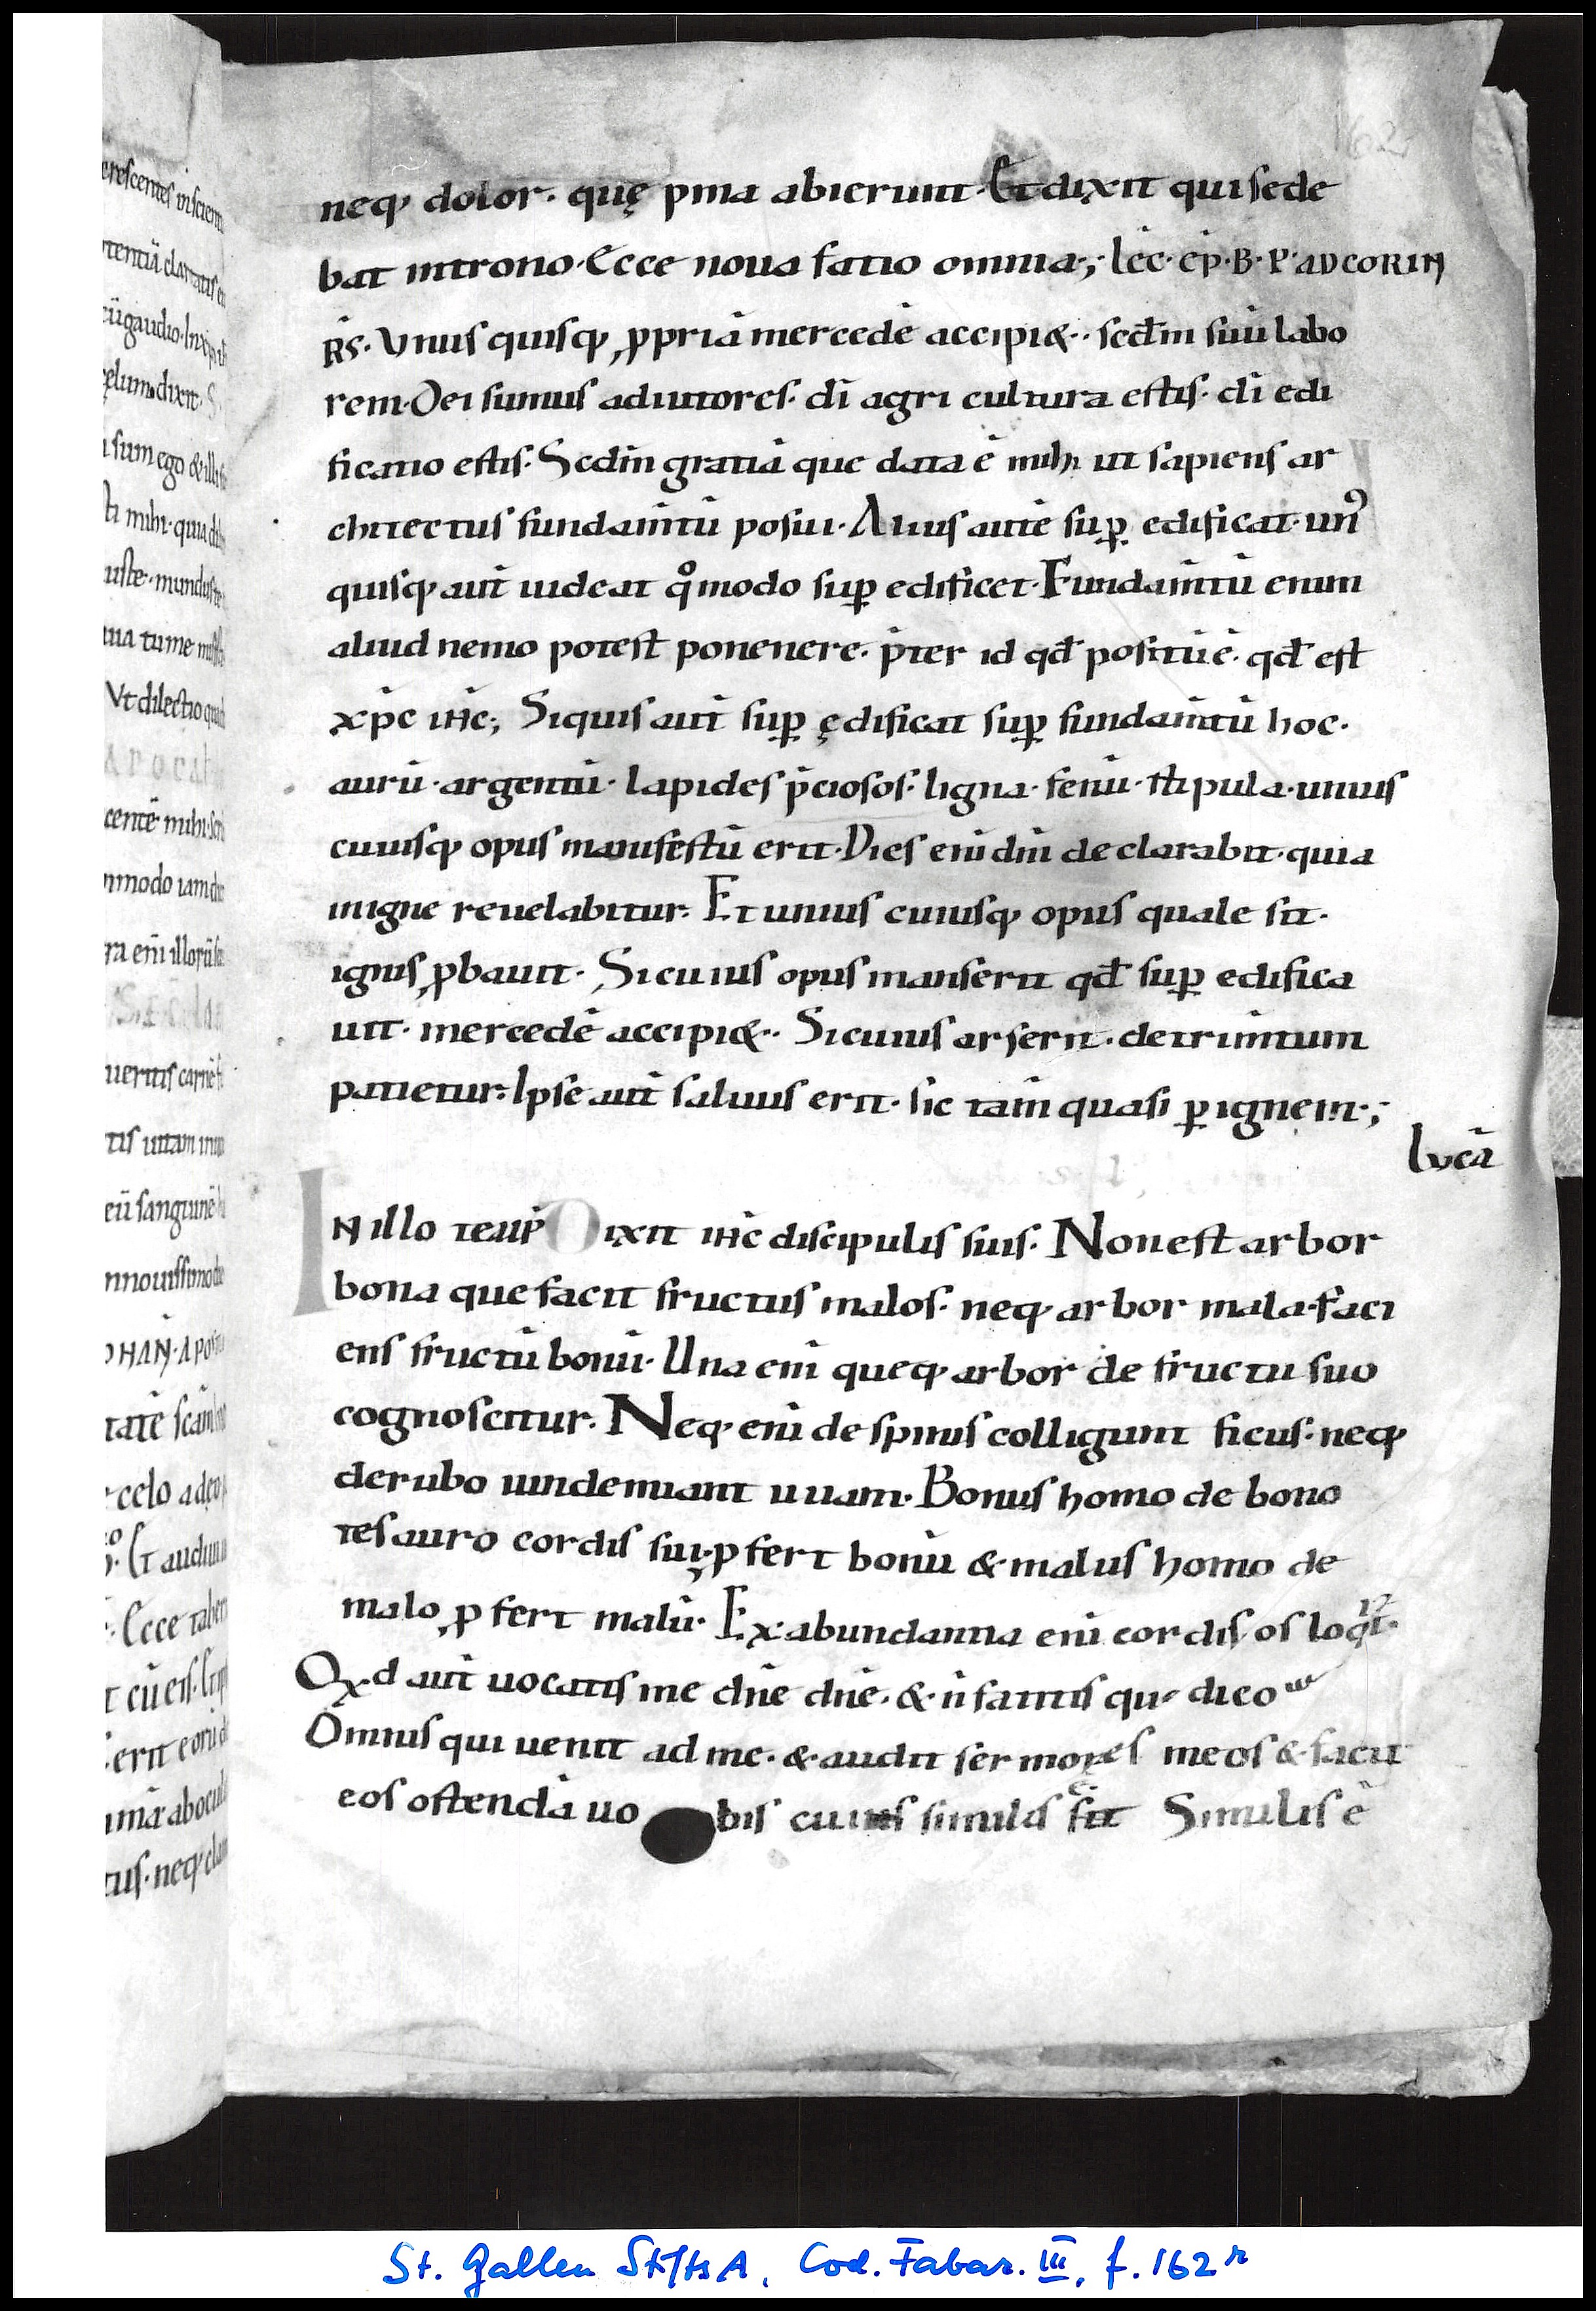 162
neq; dolor. quę pma abierunt. Et dixit qui sede
bat introno. Ecce noua fatio omnia.,. lēc. ep̄. B. P. AD CORIN
R̄S. Vnus quisq; ꝓpriā mercedē accipi&. scd̄m suū labo
rem. Dei sumus adiutores. dī agri cultura estis. dī edi
ficatio estis. Scdm̄ gratiā que data ē mihi ut sapiens ar
chitectus fundam̄tū posui. Alius autē suꝑ edificat. un᾽
quisq; aūt uideat qͦmodo suꝑ edificet. Fundam̄tū enim
aliud nemo potest ponenere. p̄ter id qd̄ positū ē. qd̄ est
xp̄c ih̄c; Siquis aūt suꝑ ędificat suꝑ fundam̄tū hoc.
aurū. argentū. lapides p̄ciosos. ligna. fenū. stipula. unius
cuiusq; opus manifestū erit. Dies enī dn̄i declarabit. quia
inigne reuelabitur. Et unius cuiusq; opus quale sit.
ignis ꝓbauit. Sicuius opus manserit qd̄ suꝑ edifica
uit. mercedē accipi&. Sicuius arserit. detrim̄tum
patietur. Ipse aūt saluus erit. sic tam̄ quasi ꝑ ignem.,.
lucā
IN illo temp̄ Dixit ih̄c discipulis suis. Non est arbor
bona que facit fructus malos. neq; arbor mala. faci
ens fructū bonū. Una enī queq; arbor de fructu suo
cognoscitur. Neq; enī de spinis colligunt ficus. neq;
derubo uindemiant uuam. Bonus homo de bono
tesauro cordis sui ꝓfert bonū & malus homo de
malo ꝓfert malū. Ex abundantia enī cordis os loqt̄.
Qxd aūt uocatis me dn̄e dn̄e. & n̄ facitis que dico
Omnis qui uenit ad me. & audit sermones meos & facit
eos ostendā uobis cuius similis sit Similis ē
St. Gallen StiftsA, Cod. Fabar. III, f. 162r